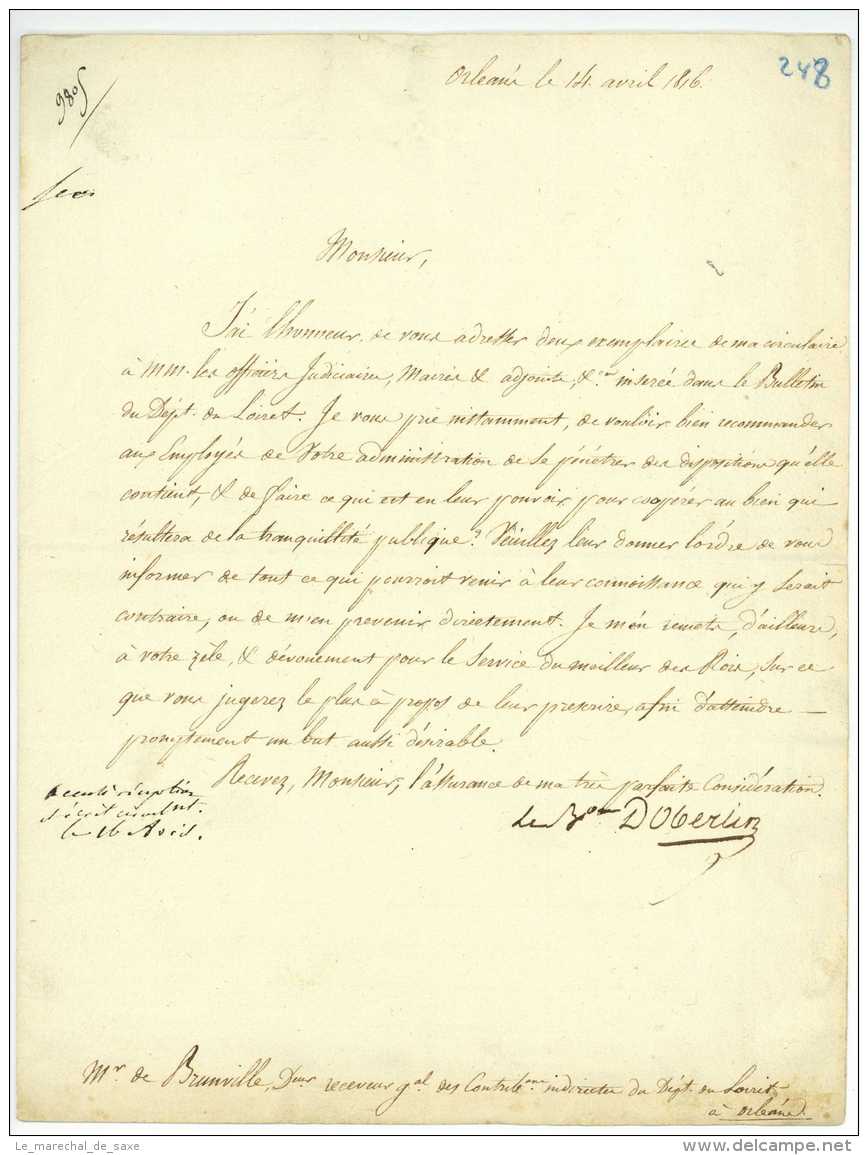 248
Orleans le 14 avril 1816.
9805
Monsieur,
J'ai l'honneur de vous adresser deux exemplaires de ma circulaire
à MM. les officiers Judiciaires, Maires & adjoints, &.ca inserée dans le Bulletin
du Dépt. du Loiret. Je vous prie instamment, de vouloir bien recommander
aux Employés de Votre administration de se pénétrer des dispositions qu'elle
contient, & de faire ce qui est en leur pouvoir pour coopérer au bien qui
résultera de la tranquillité publique. Veuillez leur donner l'ordre de vous
informer de tout ce qui pourroit venir à leur connoissance qui y serait
contraire, ou de m'en prevenir directement. Je m'en remets, d'ailleurs,
à votre zèle, & dévouement pour le Service du meilleur des Rois, sur ce
que vous jugerez le plus à propos de leur prescrire, afin d'atteindre —
promptement un but aussi désirable.
Recevez, Monsieur, l'assurance de ma très parfaite Considération.
accusé réception
et écrit
le 16 Avril.
Le Bon DOberlin
Mr. de Brunville, Dteur receveur gal des Contribons indirectes du Dépt. du Loiret
à Orléans.
Le_marechal_de_saxe
delcampe.net